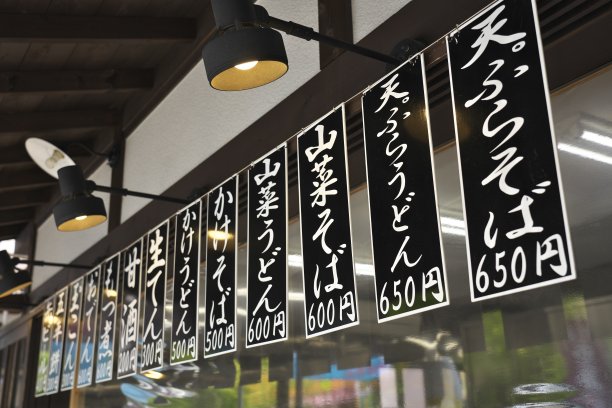 天ぷらそば
650円
天ぷらうどん
650円
山菜そば
600円
山菜うどん
600円
かけそば
500円
かけうどん
500円
生てん
300円
甘酒
もつ煮
おでん